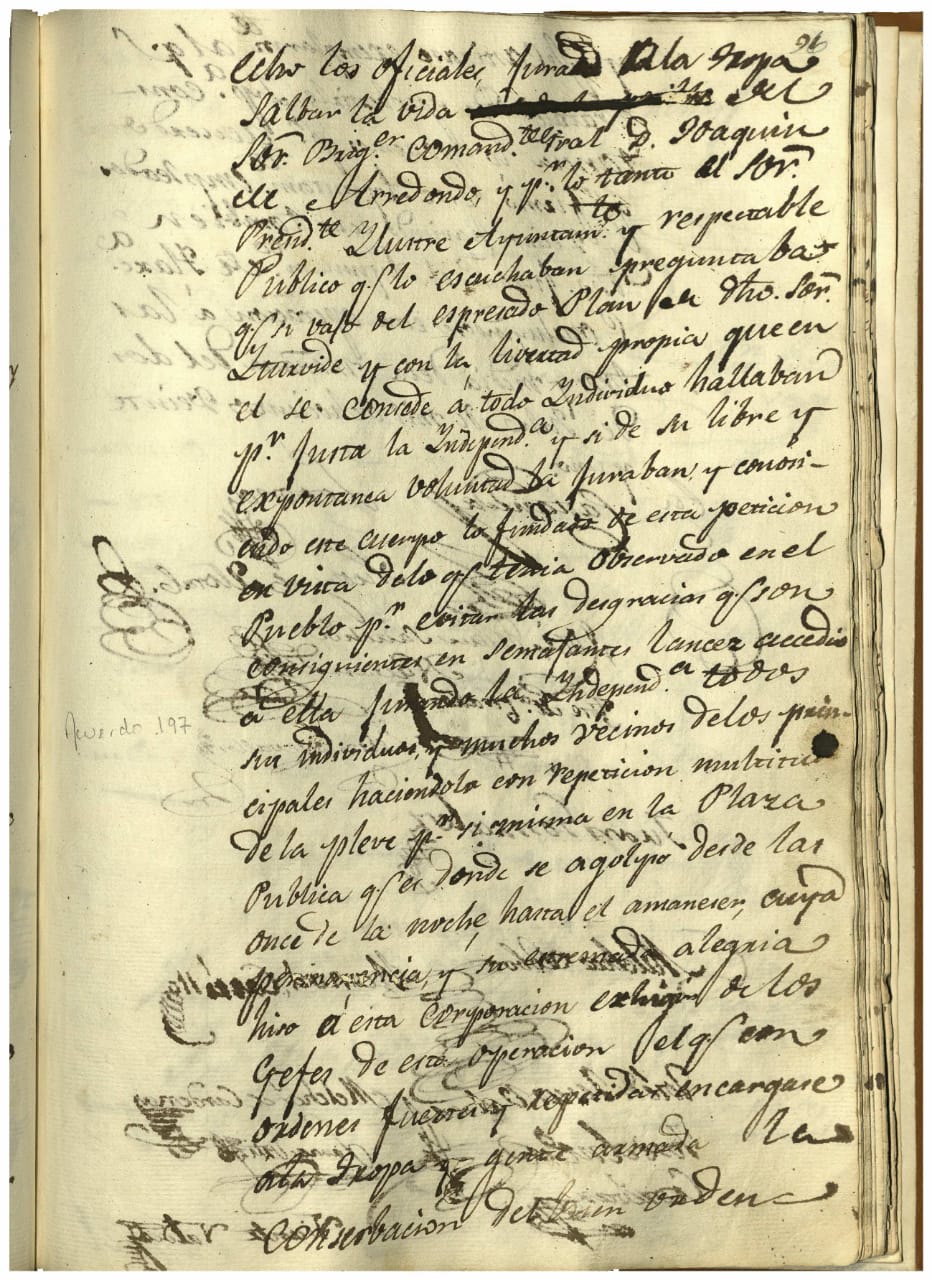 96
echo los oficiales, jurado a la tropa
salbar la vida del
Sor. Briger. Comandte. gral D. Joaquin
de Arredondo, y pr. lo tanto el Sor.
Presidte. Yllustre Ayuntamo. y respectable
Publico qe. lo escuchaban preguntaba
qe. si vajo del espresado Plan de dho. Sor.
Yturvide y con la livertad propia que en
el se consede á todo Yndividuo hallaban
pr. Justa la Yndependa. y si de su libre y
expontanea voluntad la juraban, y conosi-
endo este cuerpo lo fundado de esta peticion
en vista de lo qe. tenia observado en el
Pueblo pr. evitar las desgracias qe. son
consiguientes en semejantes lances accedio
a ella jurando la Yndependa. todos
sus individuos, y muchos vecinos de los prin-
cipales haciendolo con repeticion multitud
de la pleve pr. si misma en la Plaza
Publica qe. es donde se agolpó desde las
once de la noche, hasta el amaneser, cuya
permanencia, y su estremada alegria
hiso á esta Corporacion exhigir de los
Gefes de esta operacion el qe. con
ordenes fuertes y repetidas encargase
a la tropa y gente armada la
Conserbacion del buen orden
Acuerdo 197